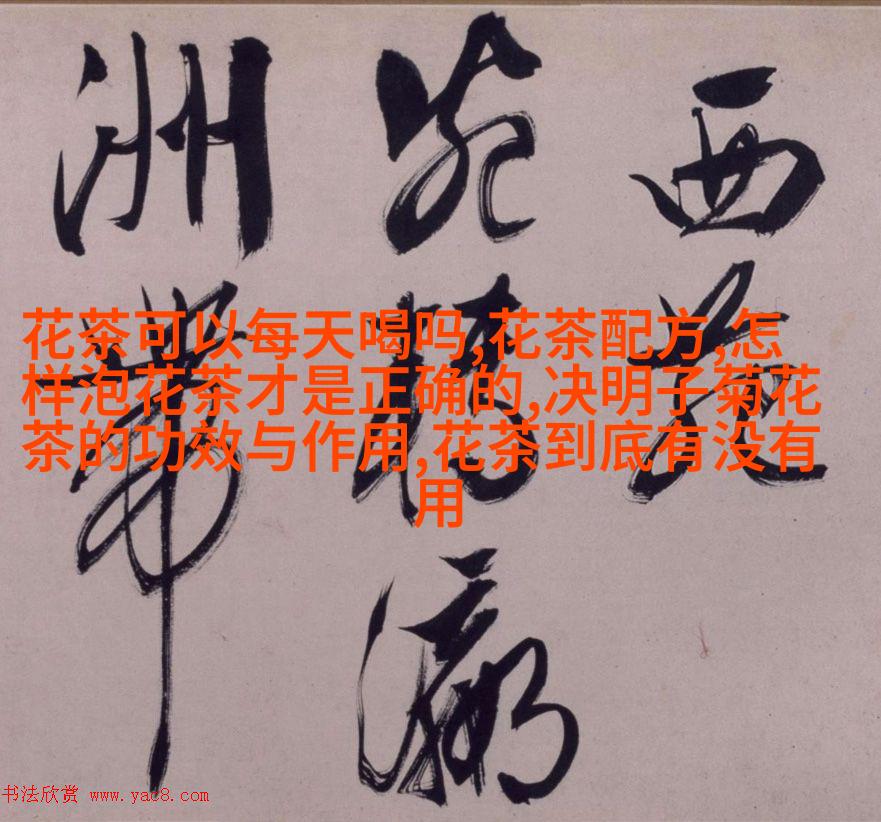 西苑
瀛
洲帶
花茶可以每天喝吗,花茶配方,怎
样泡花茶才是正确的,决明子菊花
茶的功效与作用,花茶到底有没有
用
书法欣赏 www.yac8.com